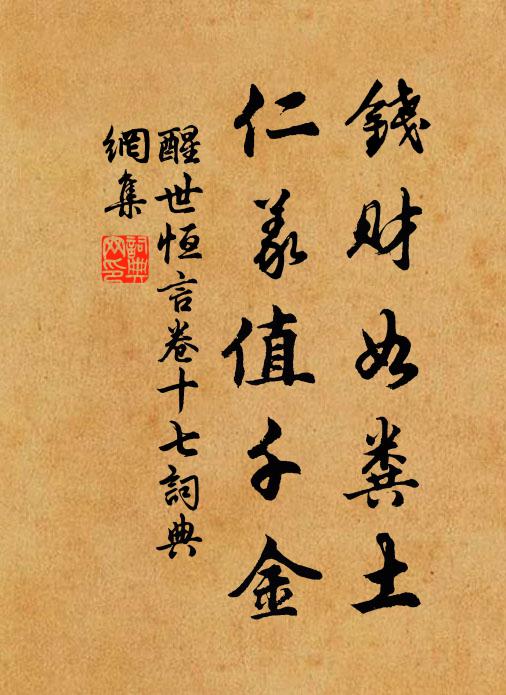 錢財如糞土
仁義值千金
醒世恒言卷十七詞典
網集
詞典
网印